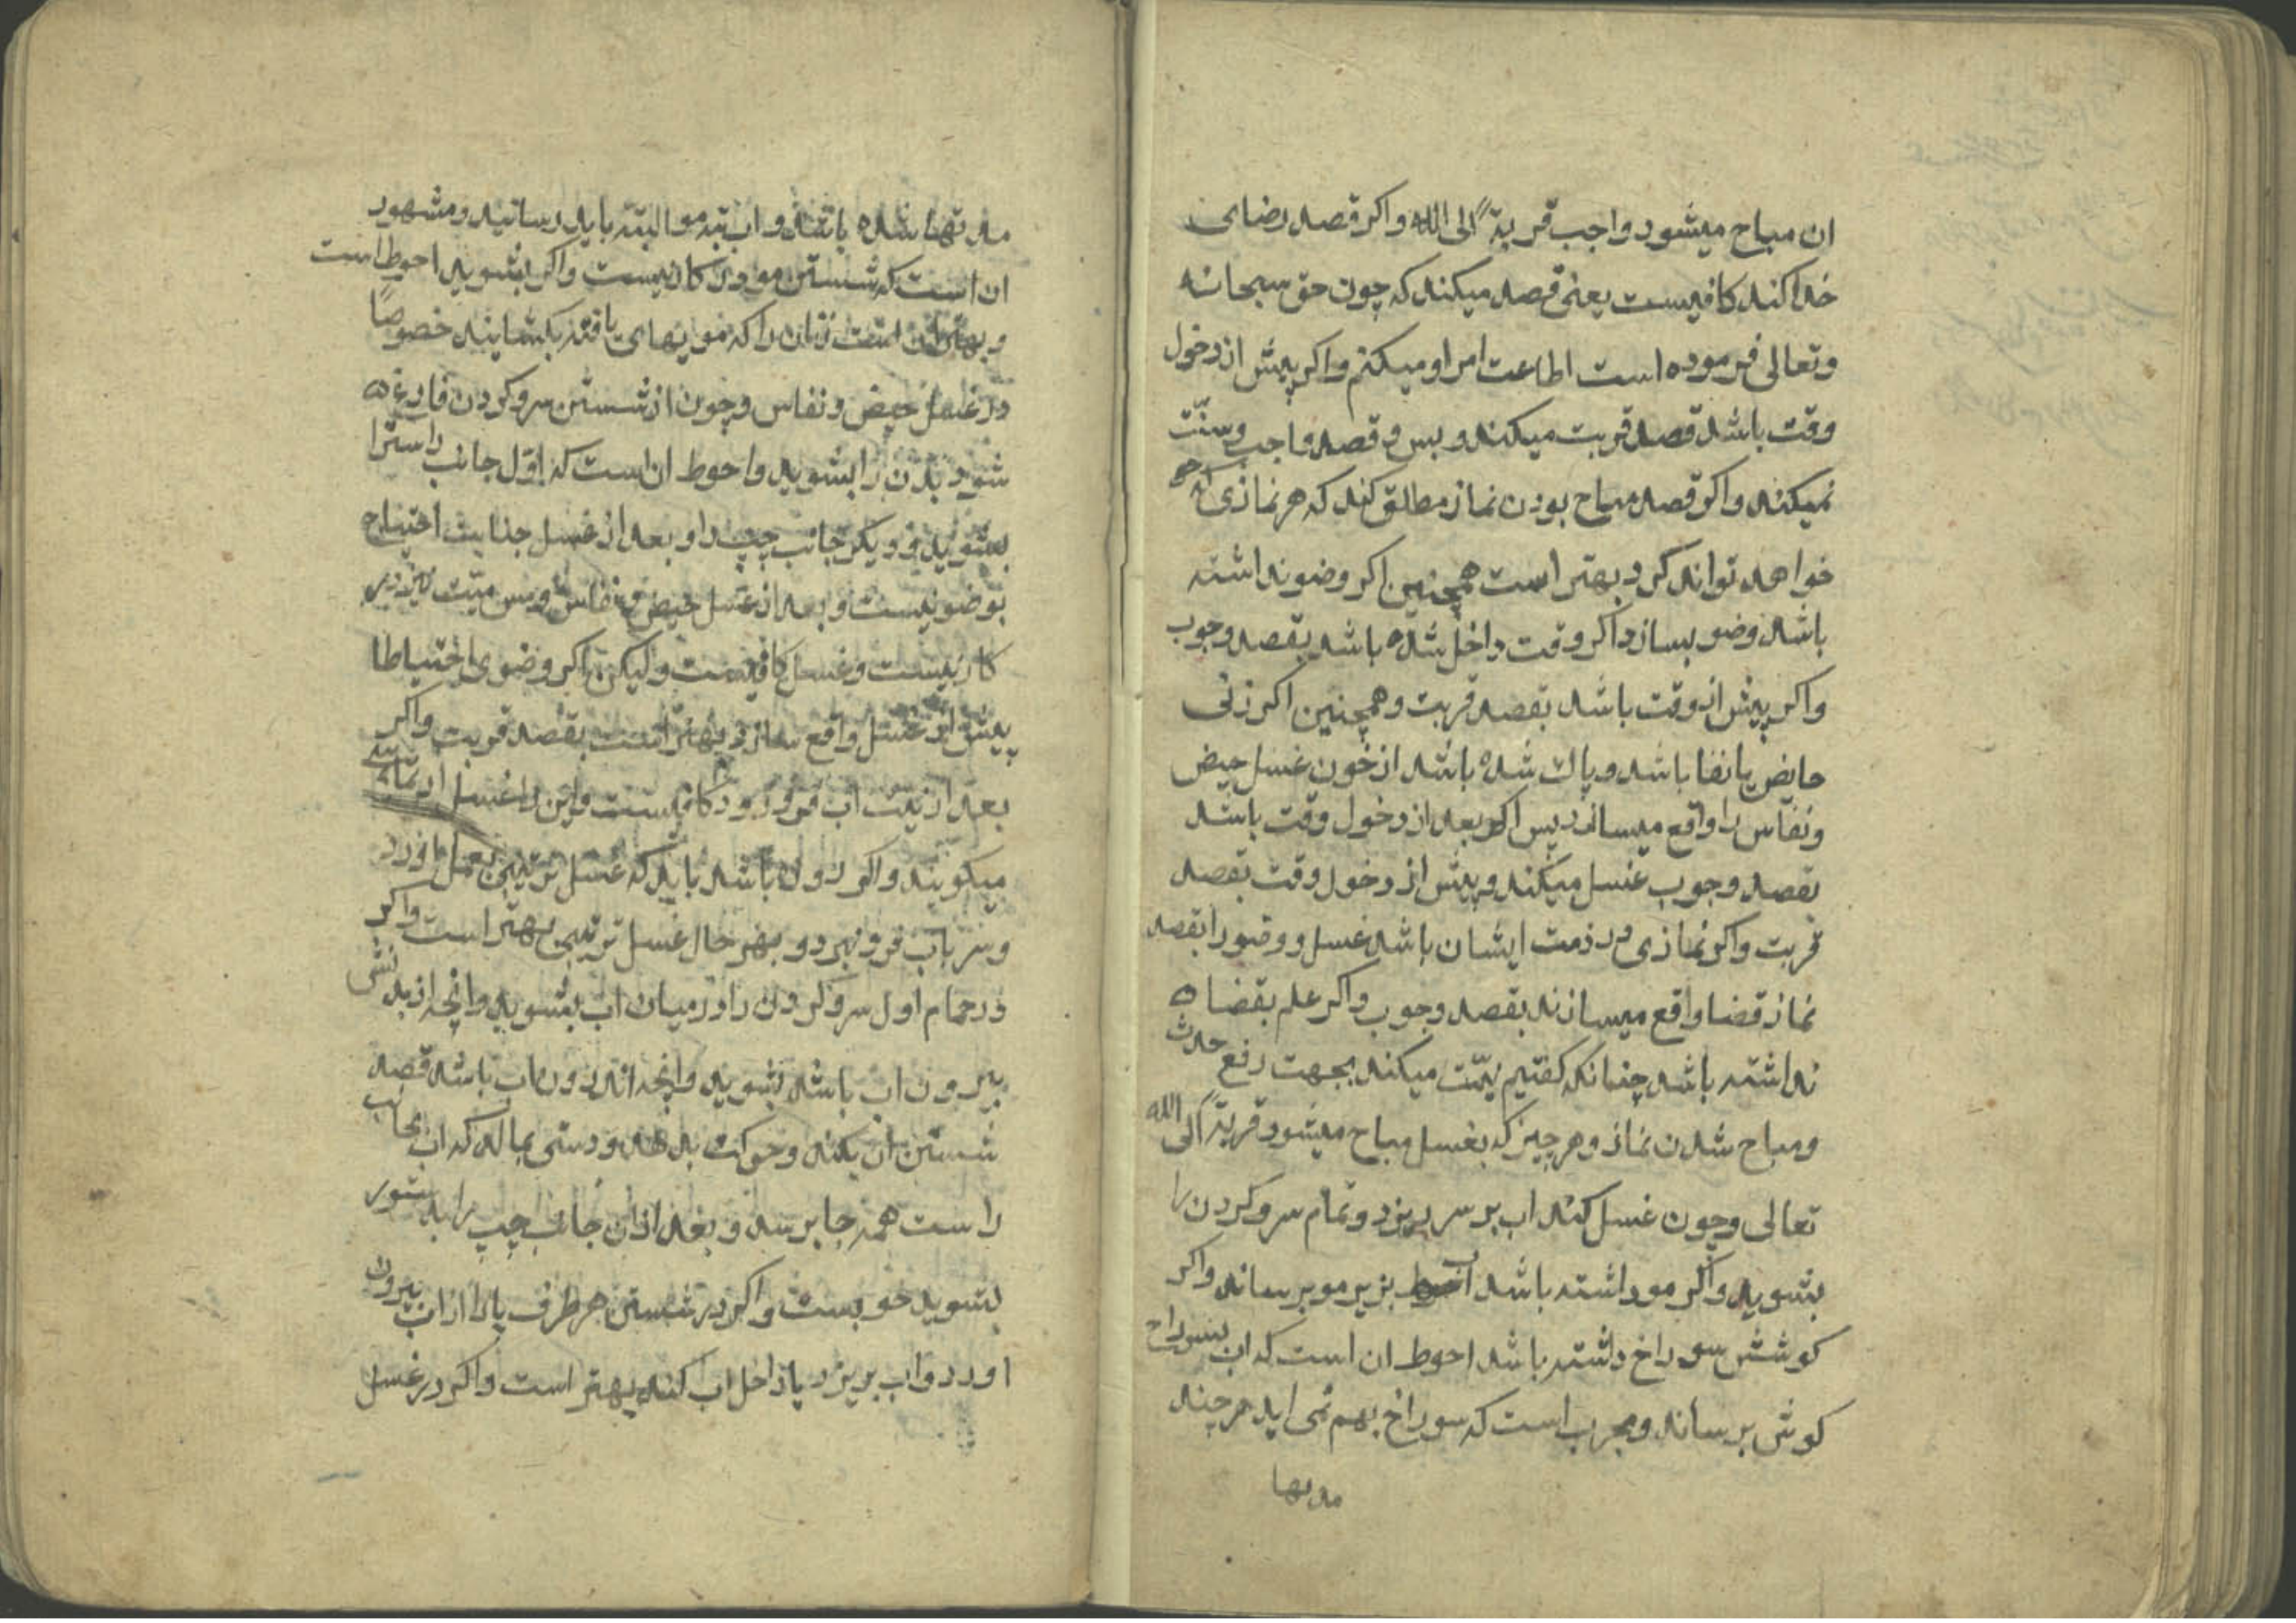 ان مباح میشود واجب قربةً الی الله واکر قصد رضای
خدا کند کافیست یعنی قصد میکند که چون حق سبحانه
وتعالی فرموده است اطاعت امر او میکنم واکر پیش از دخول
وقت باشد قصد قربت میکند و بس و قصد واجب وسنّت
نمیکند واکر قصد مباح بودن نماز مطلق کند که هر نمازی که
خواهد تواند کرد بهتر است همچنین اکر وضو نداشته
باشد وضو بسازد اکر وقت داخل شده باشد بقصد وجوب
واکر پیش از وقت باشد بقصد قربت وهمچنین اکر زنی
حایض یا نفسا باشد و پاک شده باشد از خون غسل حیض
ونفاس را واقع میسازد پس اکر بعد از دخول وقت باشد
بقصد وجوب غسل میکند و پیش از دخول وقت بقصد
قربت واکر نمازی در ذمت ایشان باشد غسل و وضو را بقصد
نماز قضا واقع میسازند بقصد وجوب واکر علم بقضا
نداشته باشد چنانکه کفتیم نیّت میکند بجهت رفع حدث
ومباح شدن نماز وهر چیز که بغسل مباح میشود قربةً الی الله
تعالی وچون غسل کند اب بر سر بریزد وتمام سر و کردن را
بشوید واکر مو داشته باشد اب بزیر مو برساند واکر
کوشش سوراخ داشته باشد احوط ان است که اب بسوراخ
کوش برساند ومجرب است که سوراخ بهم نمی اید هر چند
مدتها
مدتها شده باشد واب بته مو البته باید رسانید ومشهور
ان است که شستن مو در کار نیست واکر بشوید احوط است
وبهتر ان است زنان را که مویهای بافته بکشایند خصوصًا
در غسل حیض و نفاس وچون از شستن سر و کردن فارغ
شود بدن را بشوید واحوط ان است که اوّل جانب راسترا
بشوید و دیکر جانب چپ را و بعد از غسل جنابت احتیاج
بوضو نیست و بعد از غسل حیض و نفاس و مس میّت نیز در
کار نیست وغسل کافیست ولیکن اکر وضوی احتیاطا
پیش از غسل واقع سازد بهتر است بقصد قربت واکر
بعد از نیت اب فرو رود کافیست واین را غسل ارتماسی
میکویند واکر در اب باشد باید که غسل ترتیبی بعمل اورد
وسر باب فرو نبرد و بهر حال غسل ترتیبی بهتر است واکر
در حمام اول سر و کردن را در میان اب بشوید وانچه از بدنش
بیرون اب باشد بشوید وانچه اندرون اب باشد قصد
شستن ان بکند وحرکت بدهد ودستی بمالد که اب بجانب
راست همه جا برسد و بعد ازان جانب چپ را بدستور
بشوید خوبست واکر در شستن هر طرف پا را از اب بیرون
اورد واب بریزد یا داخل اب کند بهتر است واکر در غسل